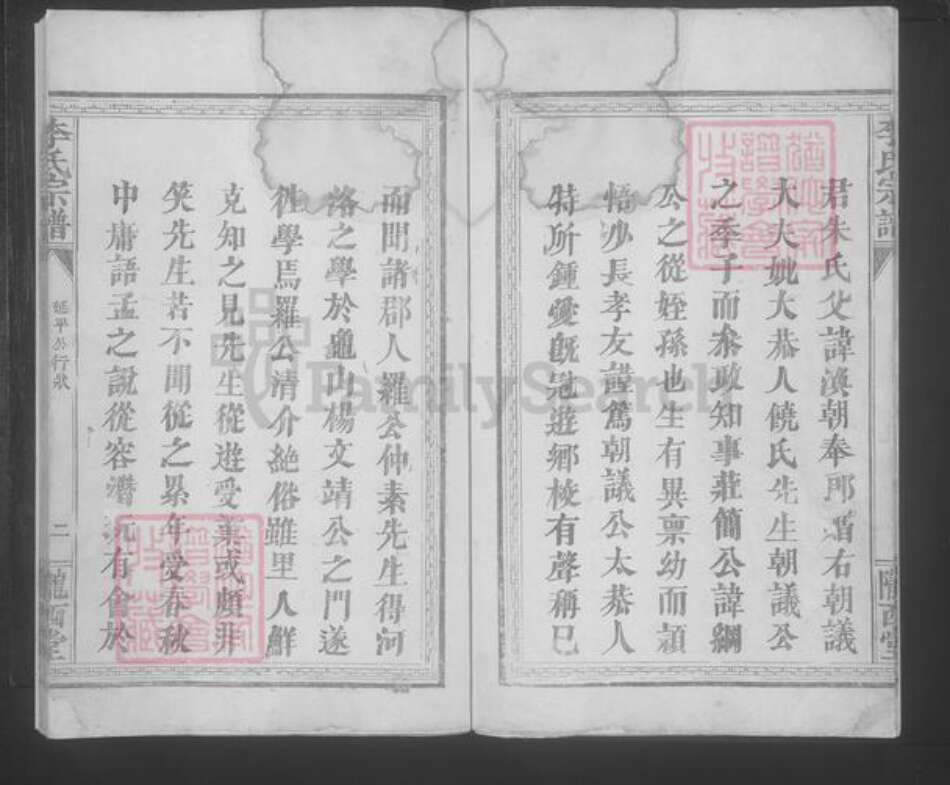 李氏宗譜
隴西堂
君朱氏父諱渙朝奉郎贈右朝議
大夫妣太恭人饒氏先生朝議公
之季子而參政知事莊簡公諱綱
公之從姪孫也生有異禀幼而穎
悟少長孝友謹篤朝議公太恭人
特所鍾愛旣冠遊鄉校有聲稱已
而聞諸郡人羅公仲素先生得河
洛之學於龜山楊文靖公之門遂
徃學焉羅公清介絶俗雖里人鮮
克知之見先生從遊受業或頗非
笑先生若不聞從之累年受春秋
中庸語孟之說從容潛玩有會於
李氏宗譜
延平公行狀
二
隴西堂
FamilySearch